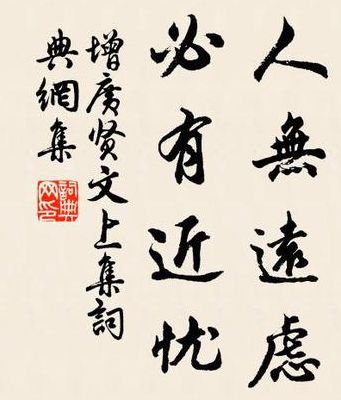 人無遠慮
必有近忧
增广贤文上集詞
典網集
詞典
网印